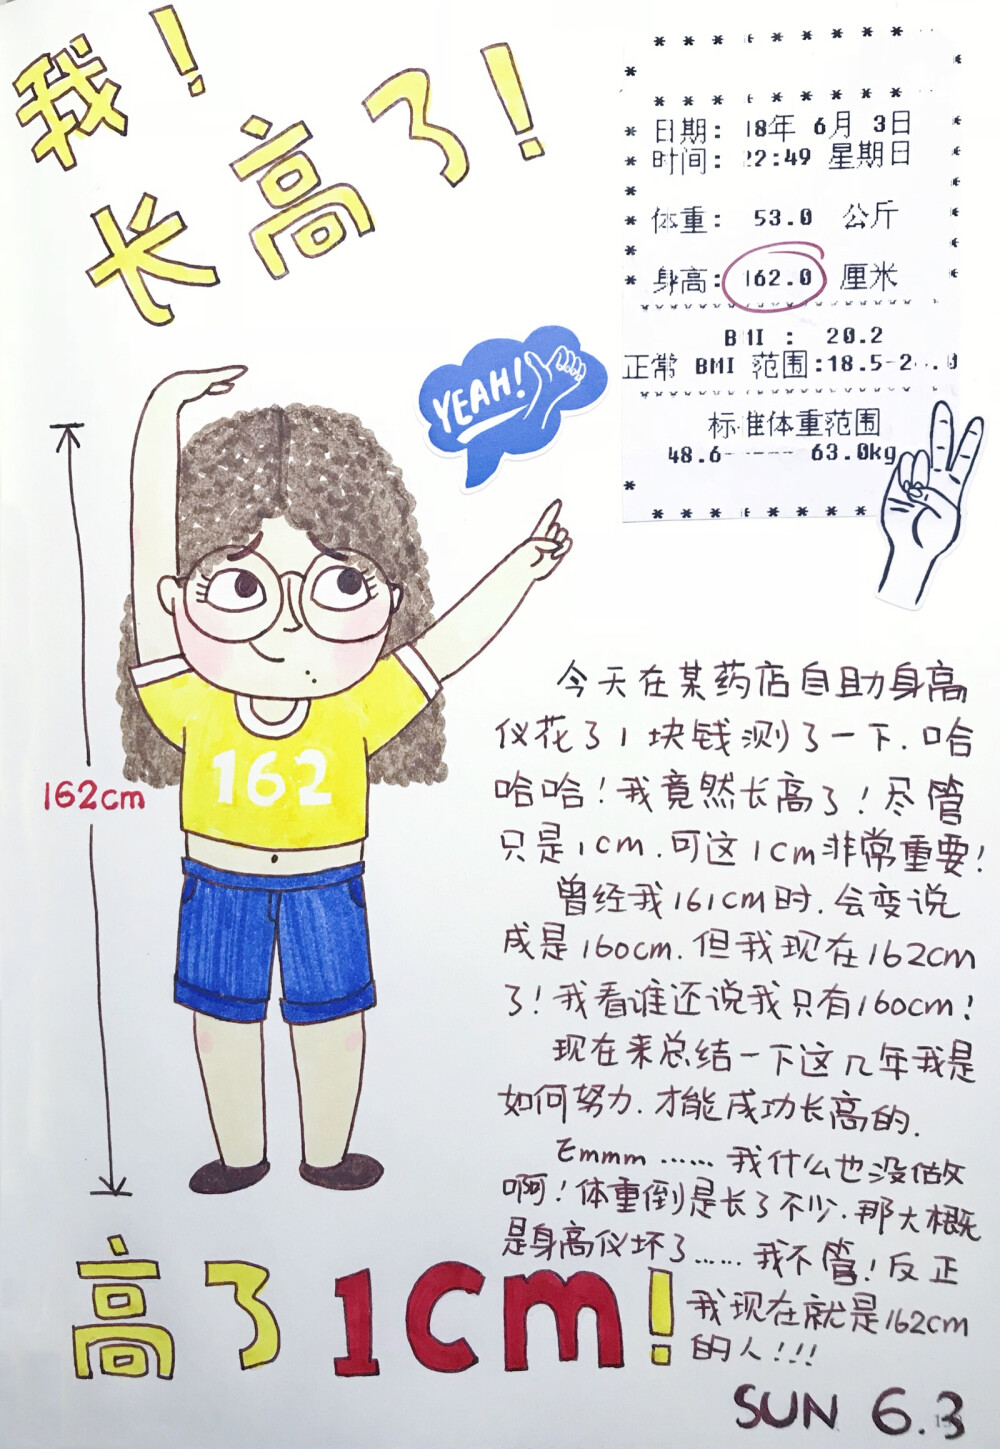 我！
长高了！
日期： 18年 6月 3日
时间： 22:49 星期日
体重： 53.0 公斤
身高： 162.0 厘米
BMI ： 20.2
正常 BMI 范围:18.5-2
标准体重范围
48.6----- 63.0kg
YEAH!
162
162cm
今天在某药店自助身高
仪花了1块钱测了一下.哈
哈哈！我竟然长高了！尽管
只是1cm.可这1cm非常重要！
曾经我161cm时.会变说
成是160cm.但我现在162cm
了！我看谁还说我只有160cm！
现在来总结一下这几年我是
如何努力.才能成功长高的.
Emmm……我什么也没做
啊！体重倒是长了不少.那大概
是身高仪坏了……我不管！反正
我现在就是162cm
的人!!!
高了1cm！
SUN 6.3